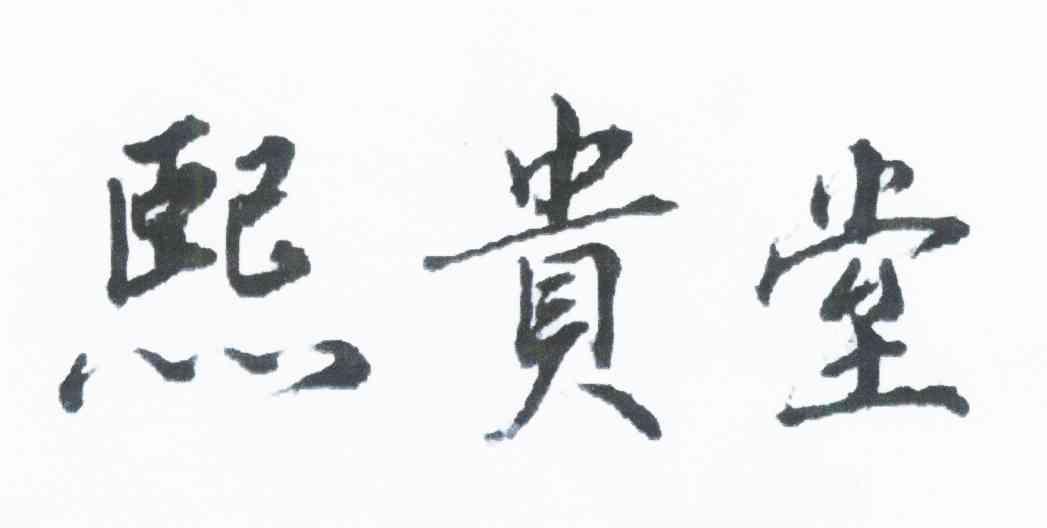 熙貴堂